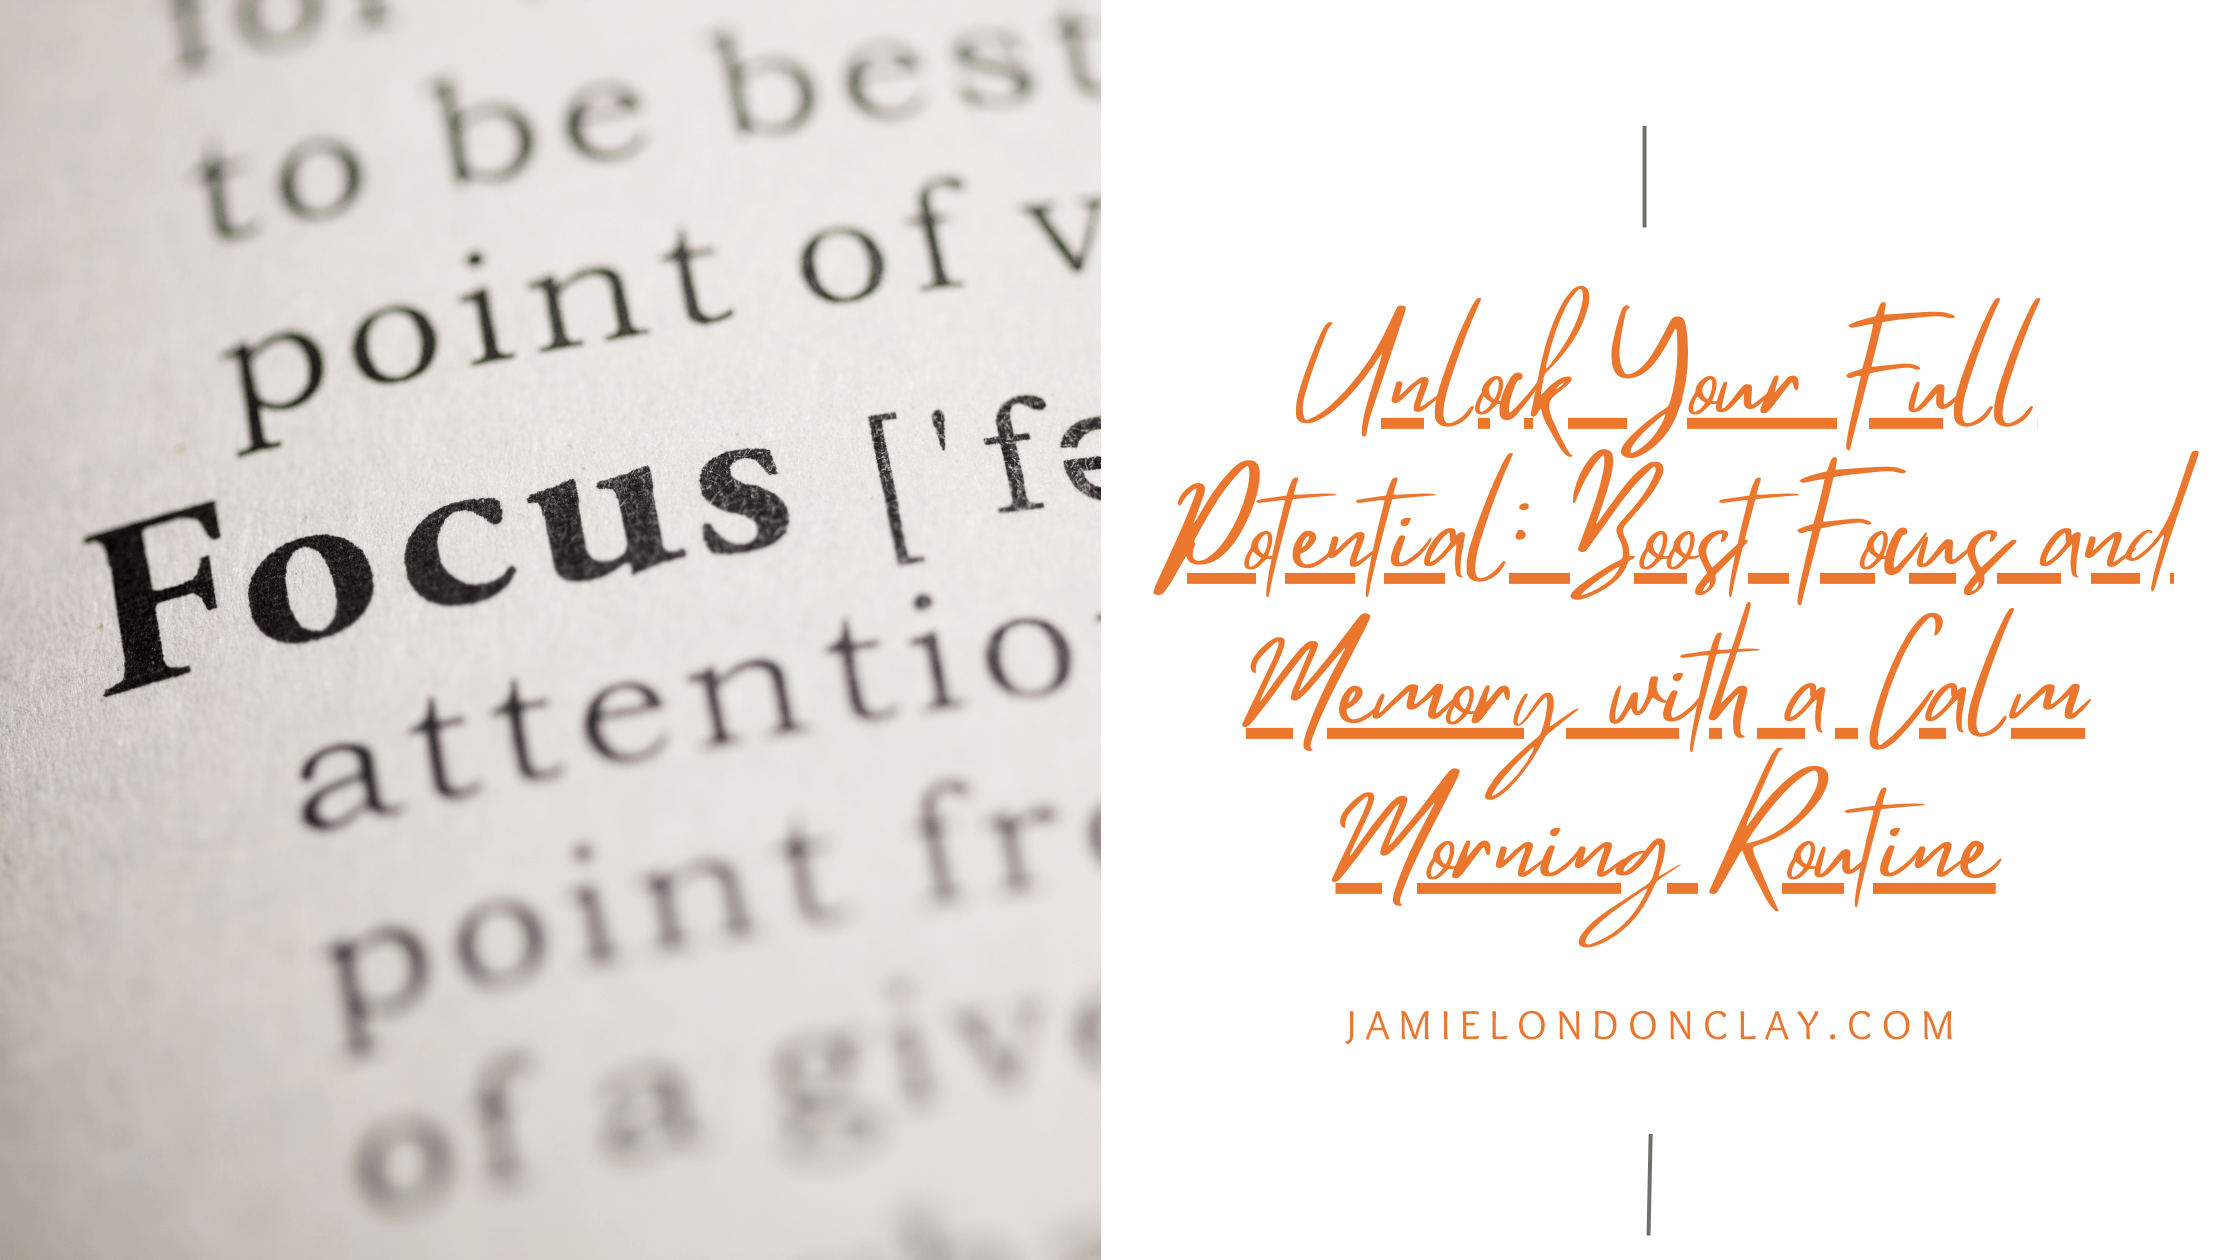 to be best
point of
Focus ['fə
attentio
point fr
of a give
Unlock Your Full
Potential: Boost Focus and
Memory with a Calm
Morning Routine
JAMIELONDONCLAY.COM